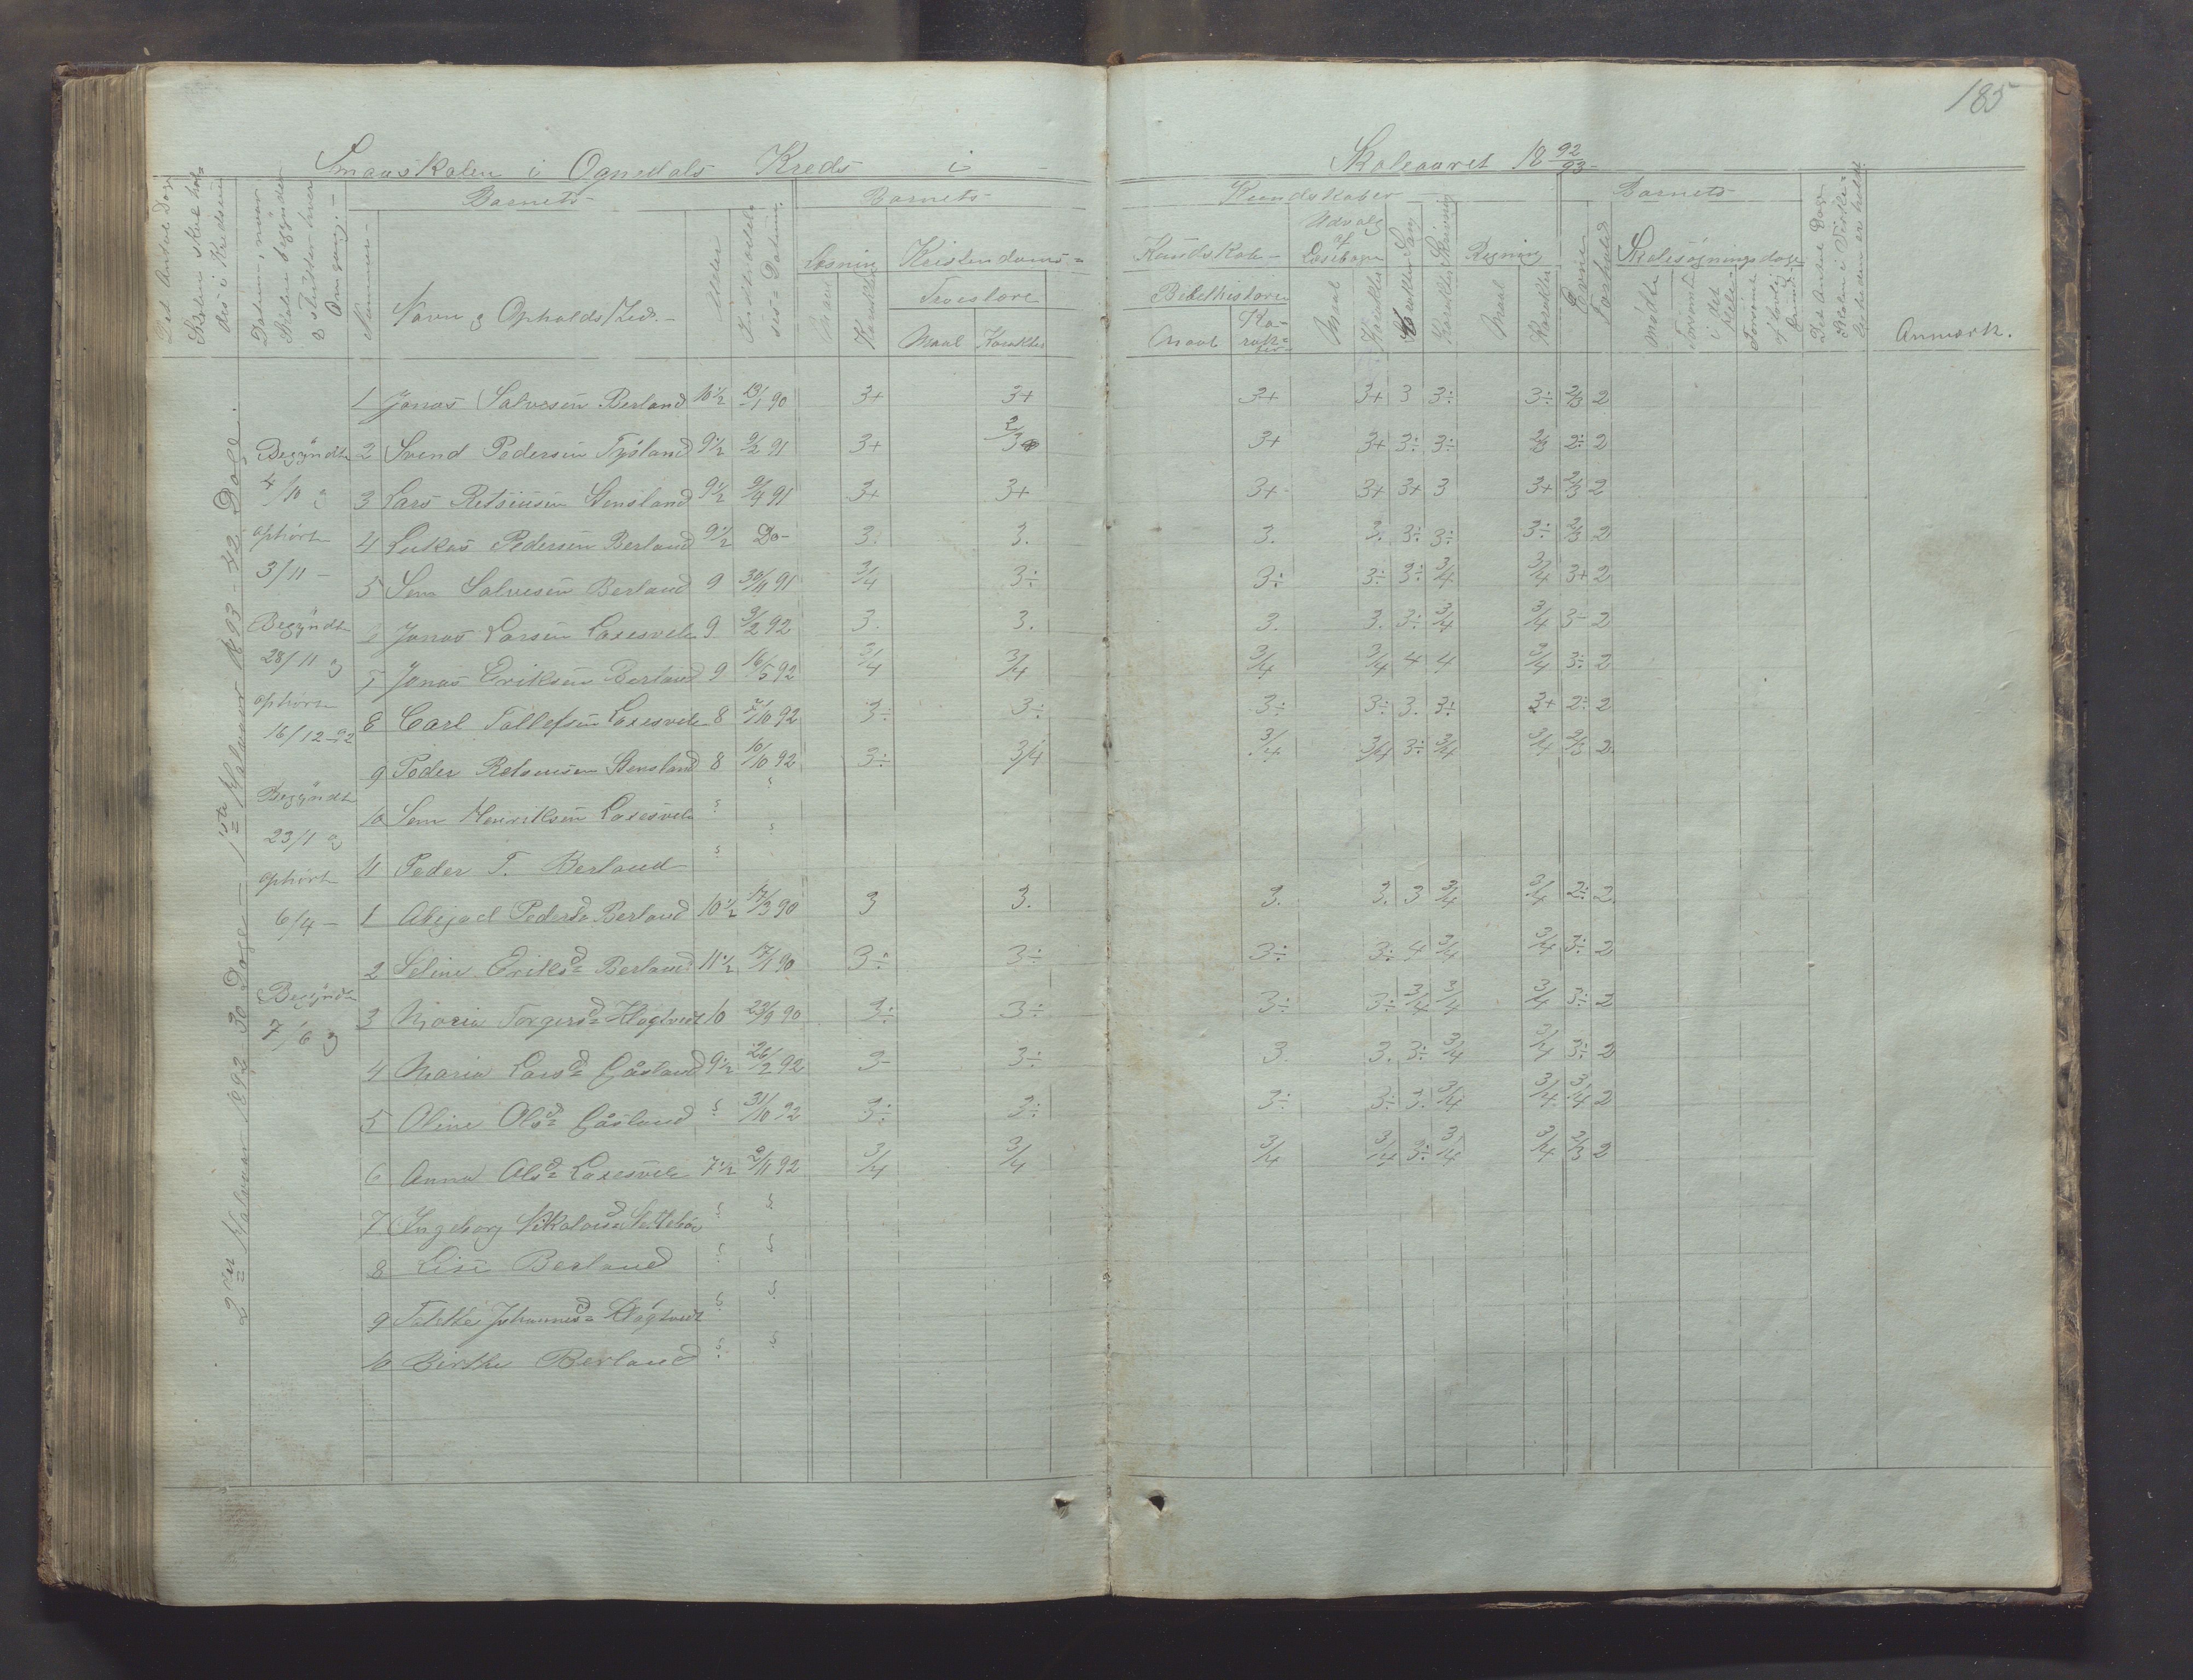 185
Smaaskolen i Ognedals Kreds i Skoleaaret 18 92/93
Det Antal Dage Skolen skal holdes i Kredsen
Datum, naar Skolen begynder & slutter hver Omgang.
Barnets
Nummer
Navn & Opholds/Sted.
Alder
Indtrædelses=Datum.
Barnets
Læsning
Maal
Karakter
Kristendoms=
Troeslære
Maal
Karakter
Kundskaber
Kundskab
Bibelhistorie
Maal
Karakter
Udvalg af Læsebogen
Maal
Karakter
Sang
Karakter
Skrivning
Karakter
Regning
Maal
Karakter
Barnets
Evner
Forhold
Skolesøgningsdage
Mødte
Forsømte i det Hele
Forsømte af lovlig Grund
Det Antal Dage Skolen i Virkeligheden er holdt
Anmærk.
2den Halvaar 1892 30 Dage — 1ste Halvaar 1893 - 42 Dage.
Begyndte 4/10 &
ophørte 3/11 -
Begyndte 28/11 &
ophørte 16/12-92
Begyndte 23/1 &
ophørte 6/4 -
Begyndte 7/6 &
1 Jonas Salvesen Berland 10 1/2 13/1 90 3+ 3+ 3+ 3+ 3 3÷ 3÷ 2/3 2
2 Svend Pedersen Tysland 9 1/2 9/2 91 3+ 2/3 3+ 3+ 3÷ 3÷ 2/3 2÷ 2
3 Lars Retsiusen Stensland 9 1/2 9/4 91 3+ 3+ 3+ 3+ 3+ 3 3+ 2/3 2
4 Lukas Pedersen Berland 9 1/2 Do- 3. 3. 3. 3. 3÷ 3÷ 3÷ 2/3 2
5 Sem Salvesen Berland 9 30/11 91 3/4 3÷ 3÷ 3÷ 3÷ 3/4 3/4 3+ 2
6 Jonas Larsen Laxesvele 9 9/2 92 3. 3. 3. 3. 3÷ 3/4 3/4 3- 2
7 Jonas Eriksen Berland 9 16/5 92 3/4 3/4 3/4 3/4 4 4 3/4 3÷ 2
8 Carl Tollefsen Laxesvele 8 5/10 92 3÷ 3÷ 3÷ 3÷ 3. 3÷ 3+ 2÷ 2
9 Peder Retsiusen Stensland 8 10/10 92 3÷ 3/4 3/4 3/4 3÷ 3/4 3/4 2/3 2.
10 Sem Henriksen Laxesvele
11 Peder T. Berland
1 Abigael Pedersd Berland 10 1/2 17/3 90 3 3. 3. 3. 3 3/4 3/4 2÷ 2.
2 Seline Eriksd Berland 11 1/2 17/1 90 3÷ 3÷ 3÷ 3÷ 4 3/4 3/4 3÷ 2
3 Maria Torgersd Kløgtvedt 10 29/9 90 3÷ 3÷ 3÷ 3÷ 3/4 3/4 3/4 3÷ 2
4 Maria Larsd Gåsland 9 1/2 26/2 92 3- 3÷ 3 3. 3÷ 3/4 3/4 3÷ 2
5 Oline Olsd Gåsland 31/10 92 3÷ 3÷ 3÷ 3÷ 3. 3/4 3/4 3/4 2
6 Anna Olsd Laxesvele 7 1/2 2/11 92 3/4 3/4 3/4 3/4 3÷ 3/4 3/4 2/3 2
7 Ingeborg
8 Lise Berland
9 Johannesd Kløgtvedt
10 Birthe Berland